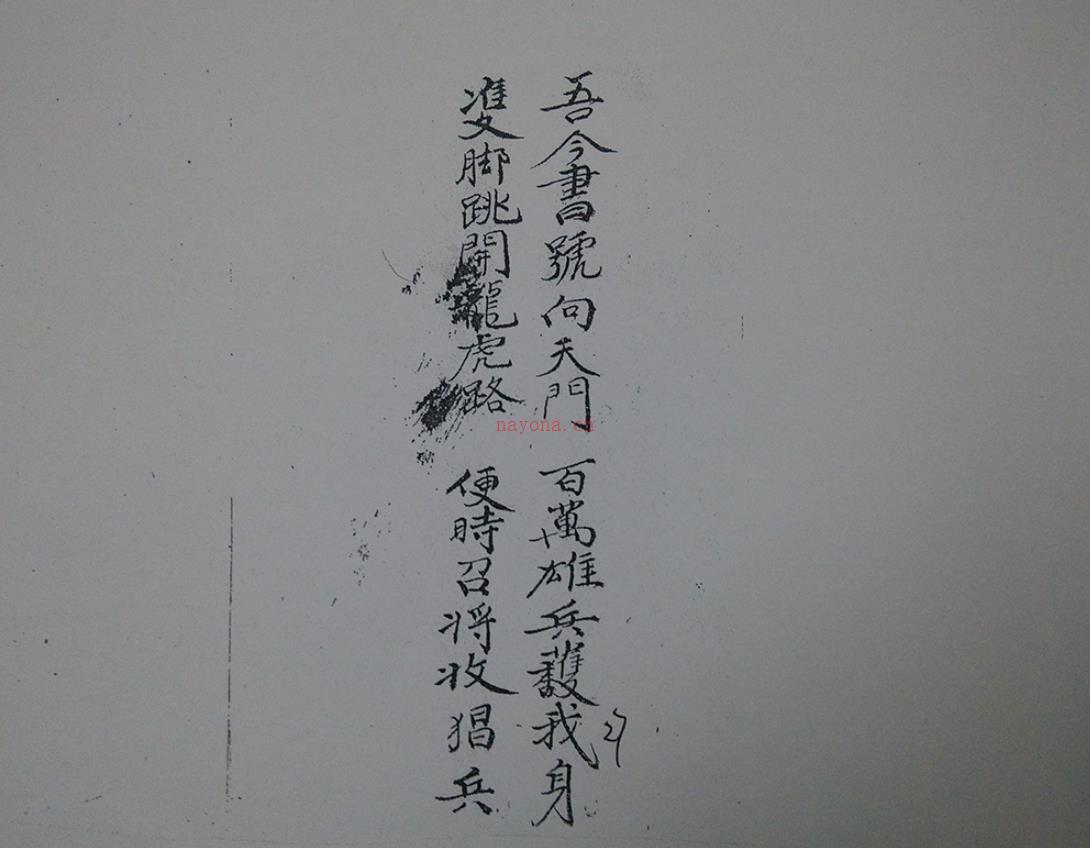 吾今書號向天門　百萬雄兵護我身
雙脚跳開龍虎路　便時召将收猖兵
nayona.c